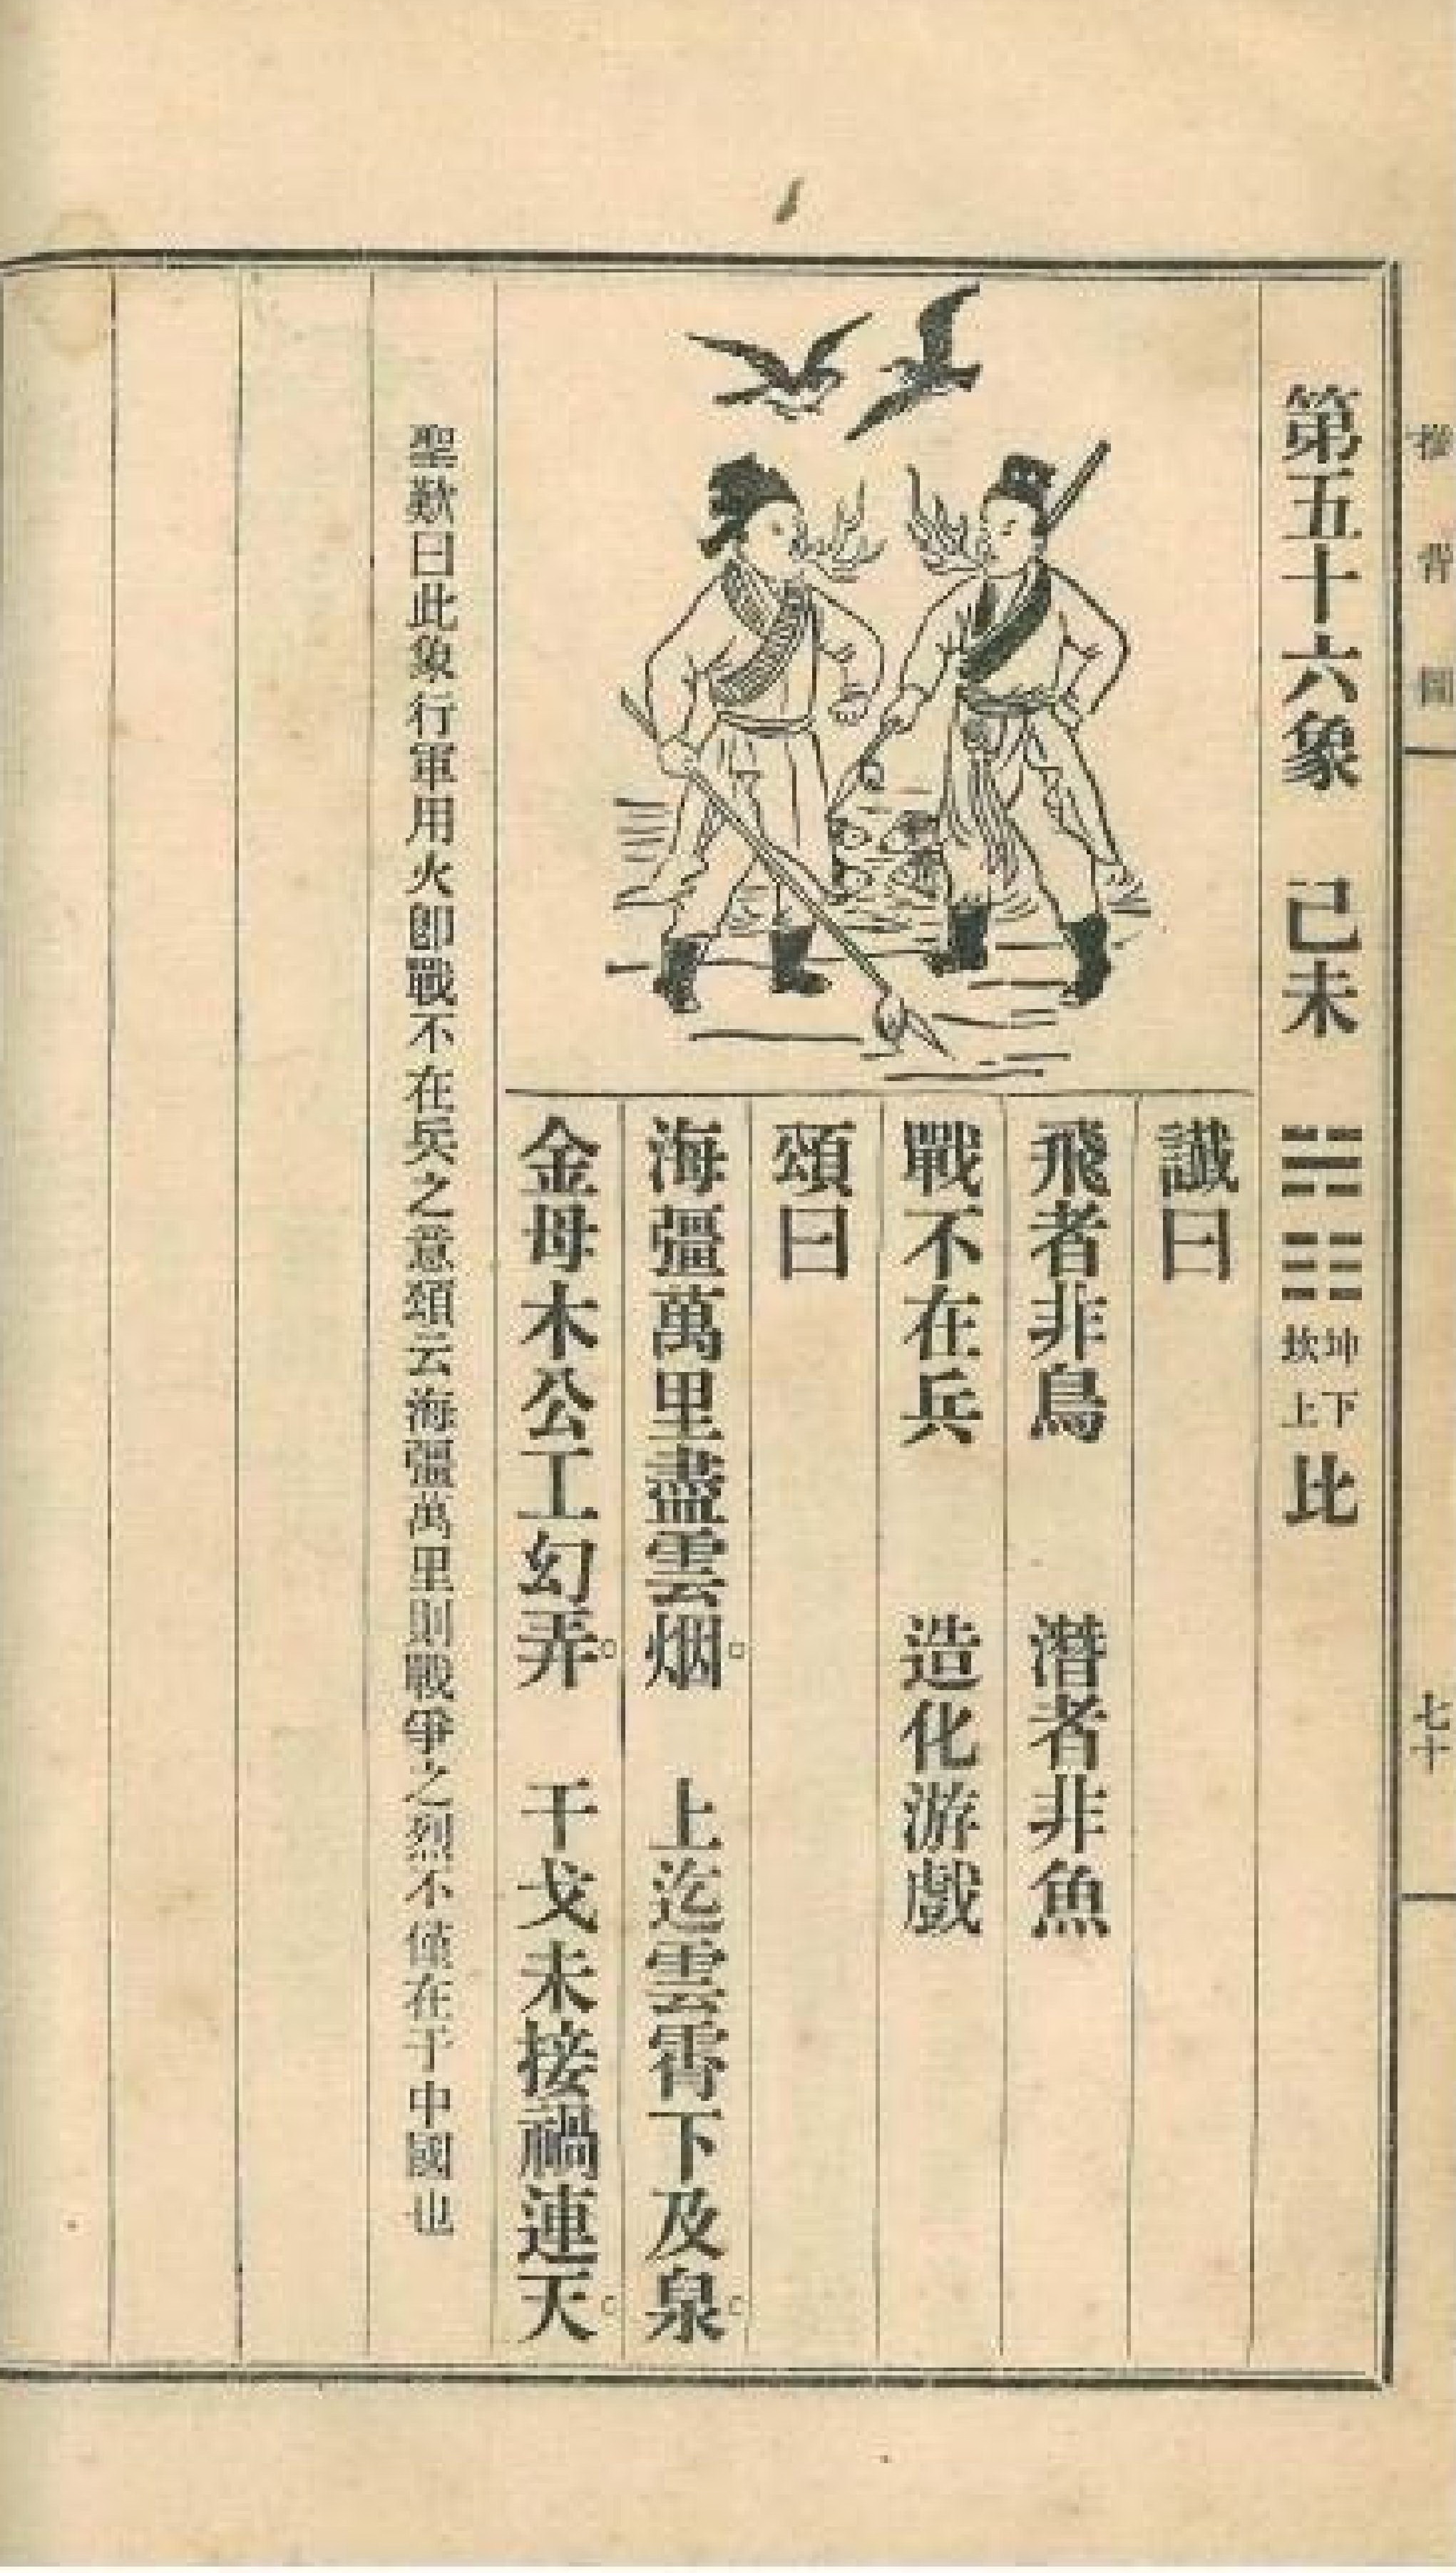 推背圖
七十
第五十六象 己未 ䷇ 坤下坎上 比
讖曰
飛者非鳥 潛者非魚
戰不在兵 造化游戲
頌曰
海疆萬里盡雲烟。 上迄雲霄下及泉。
金母木公工幻弄。 干戈未接禍連天。
聖歎曰此象行軍用火卽戰不在兵之意頌云海疆萬里則戰爭之烈不僅在于中國也